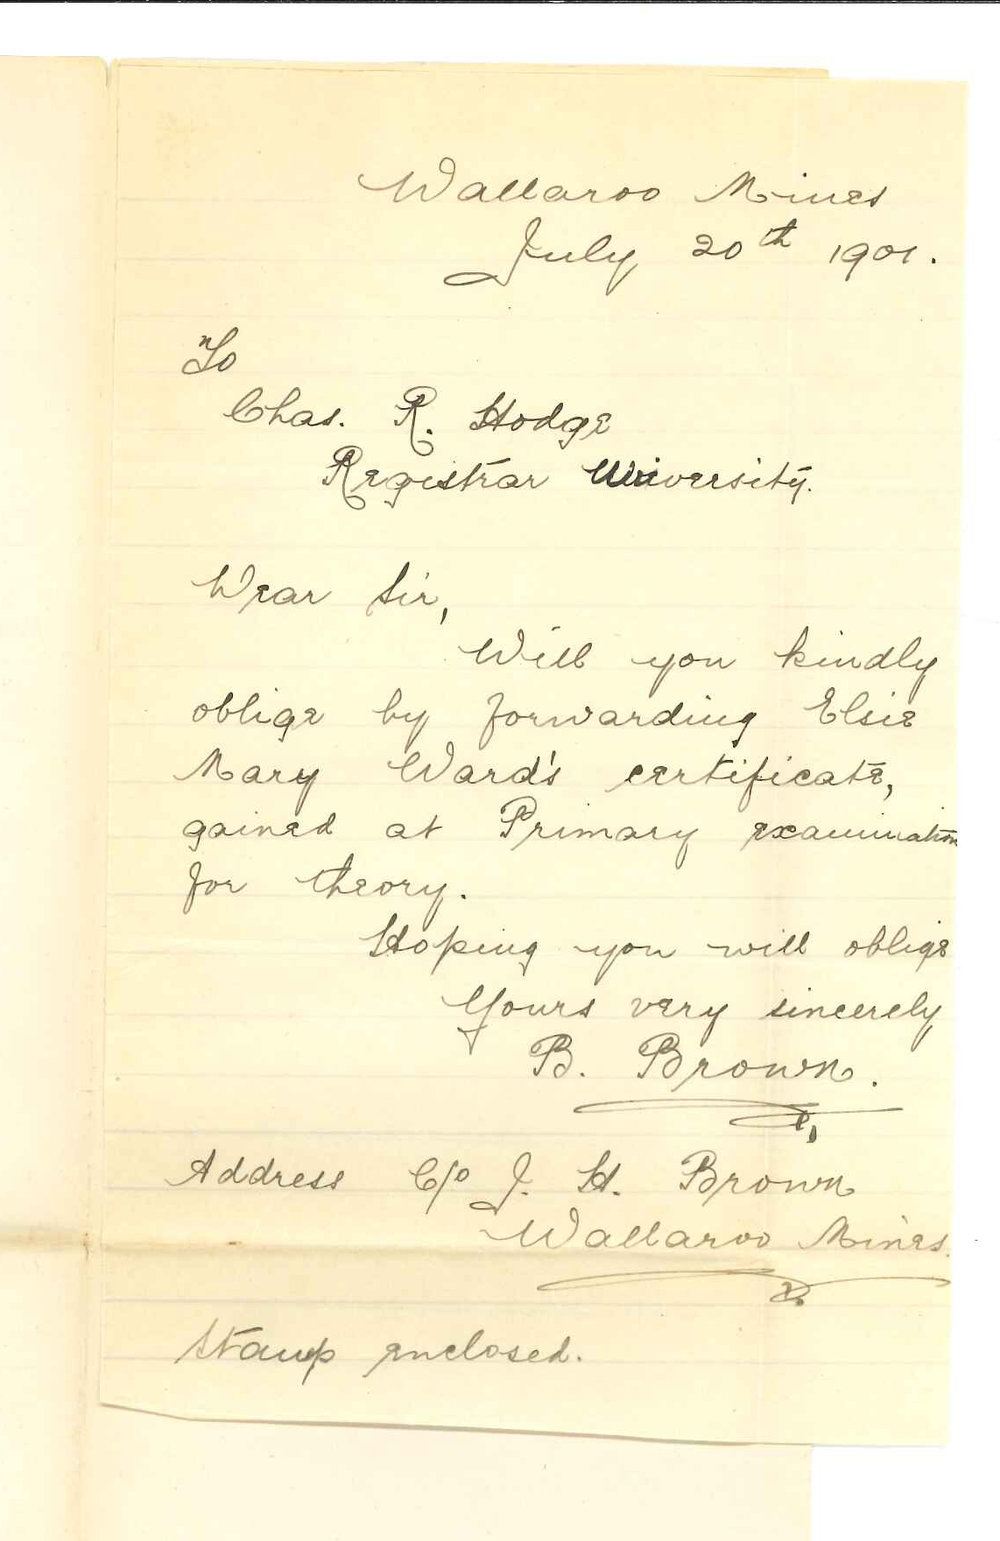 Wallaroo Mines
July 20th 1901.
To
Chas. R. Hodge
Registrar University.
Dear Sir,
Will you kindly
oblige by forwarding Elsie
Mary Ward's certificate,
gained at Primary examination
for theory.
Hoping you will oblige
Yours very sincerely
B. Brown.
Address C/o J. H. Brown
Wallaroo Mines.
Stamp enclosed.